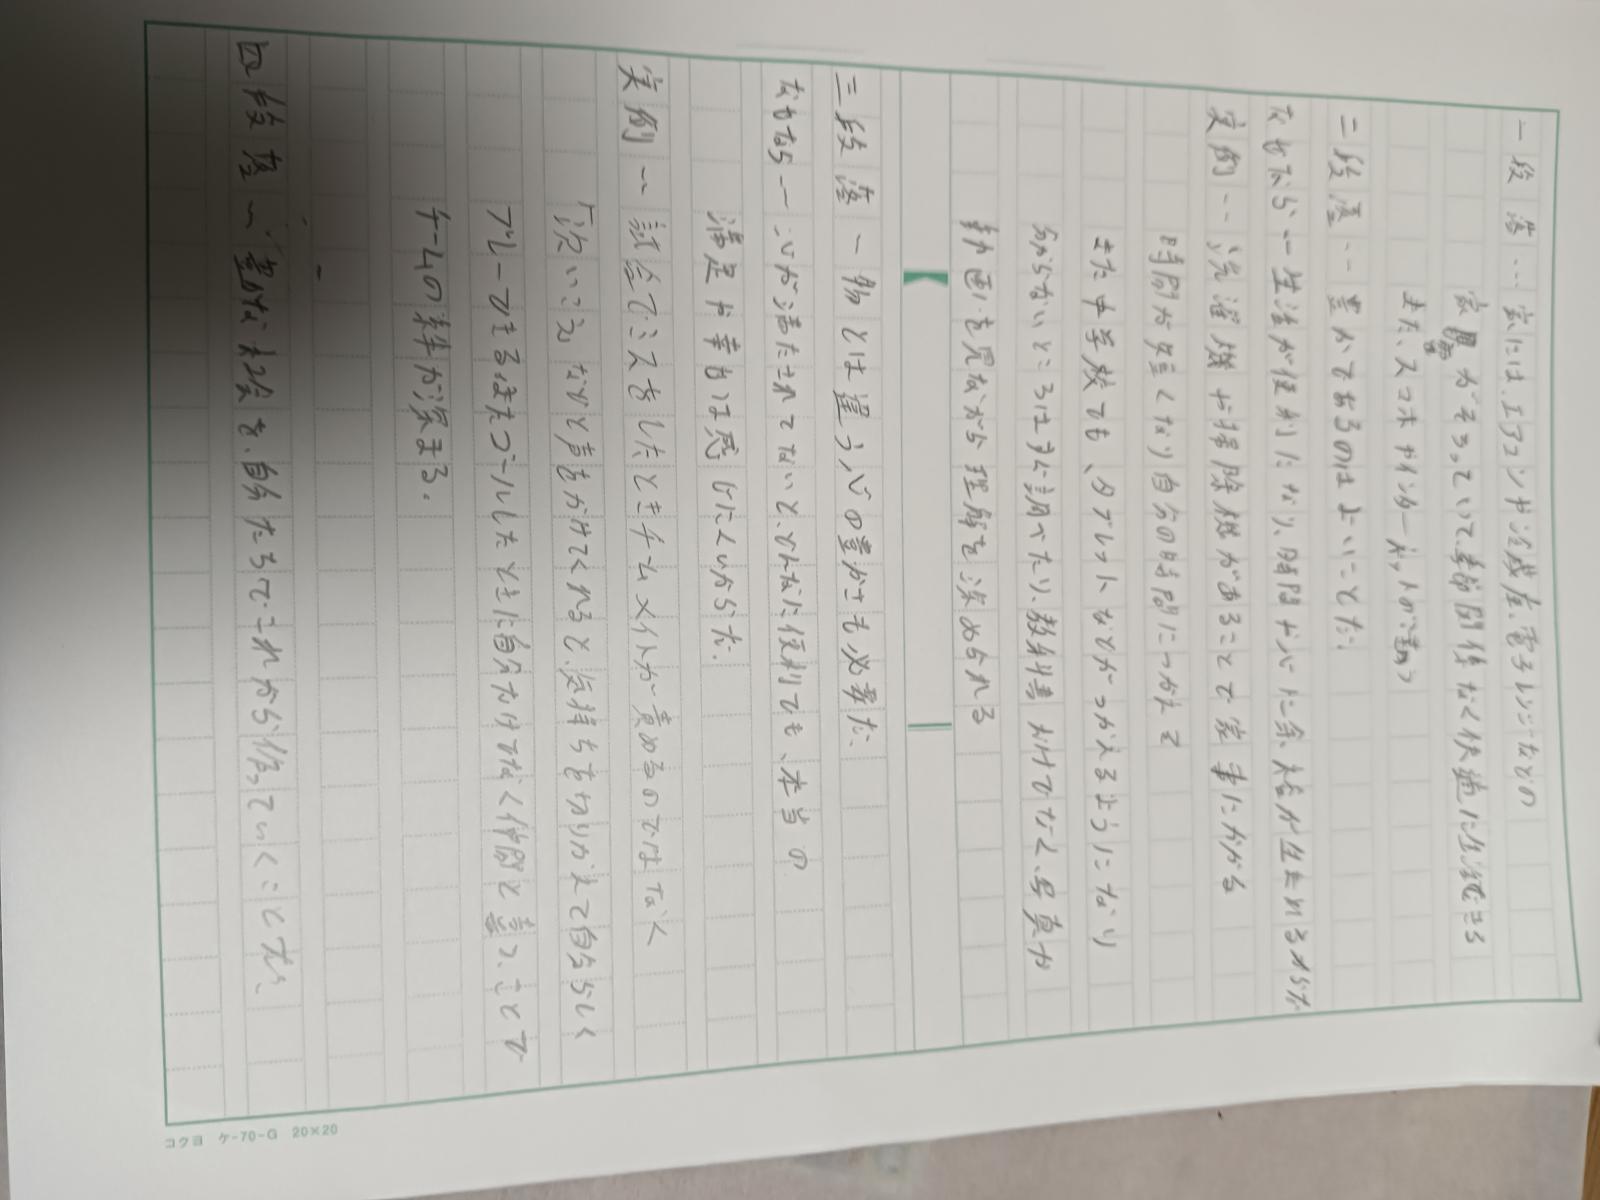 一段落…家には、エアコンや冷蔵庫、電子レンジなどの
家具がそろっていて、季節関係なく快適に生活できる
また、スマホやインターネットが
二段落…豊かであるのはよいことだ。
なぜなら…生活が便利になり、時間や心に余裕が生まれるからだ
実例…洗濯機や掃除機があることで家事にかかる
時間が短くなり自分の時間につかえて
また中学校でも、タブレットなどがつかえるようになり
分からないところはすぐに調べたり、教科書だけでなく、写真や
動画を見ながら理解を深められる
三段落ー物とは違う心の豊かさも必要だ、
なぜならー心が満たされてないと、どんなに便利でも、本当の
満足や幸せは感じにくいからだ。
実例ー試合でミスをしたときチームメイトが責めるのではなく
「次いこう」などと声をかけてくれると、気持ちを切りかえて自分らしく
プレーできるほたゴールしたときに自分だけでなく仲間と喜ぶことで
チームの絆が深まる.
四段落ー豊かな社会を、自分たちでこれから作っていくことだ、
コクヨ ケ-70-G 20×20